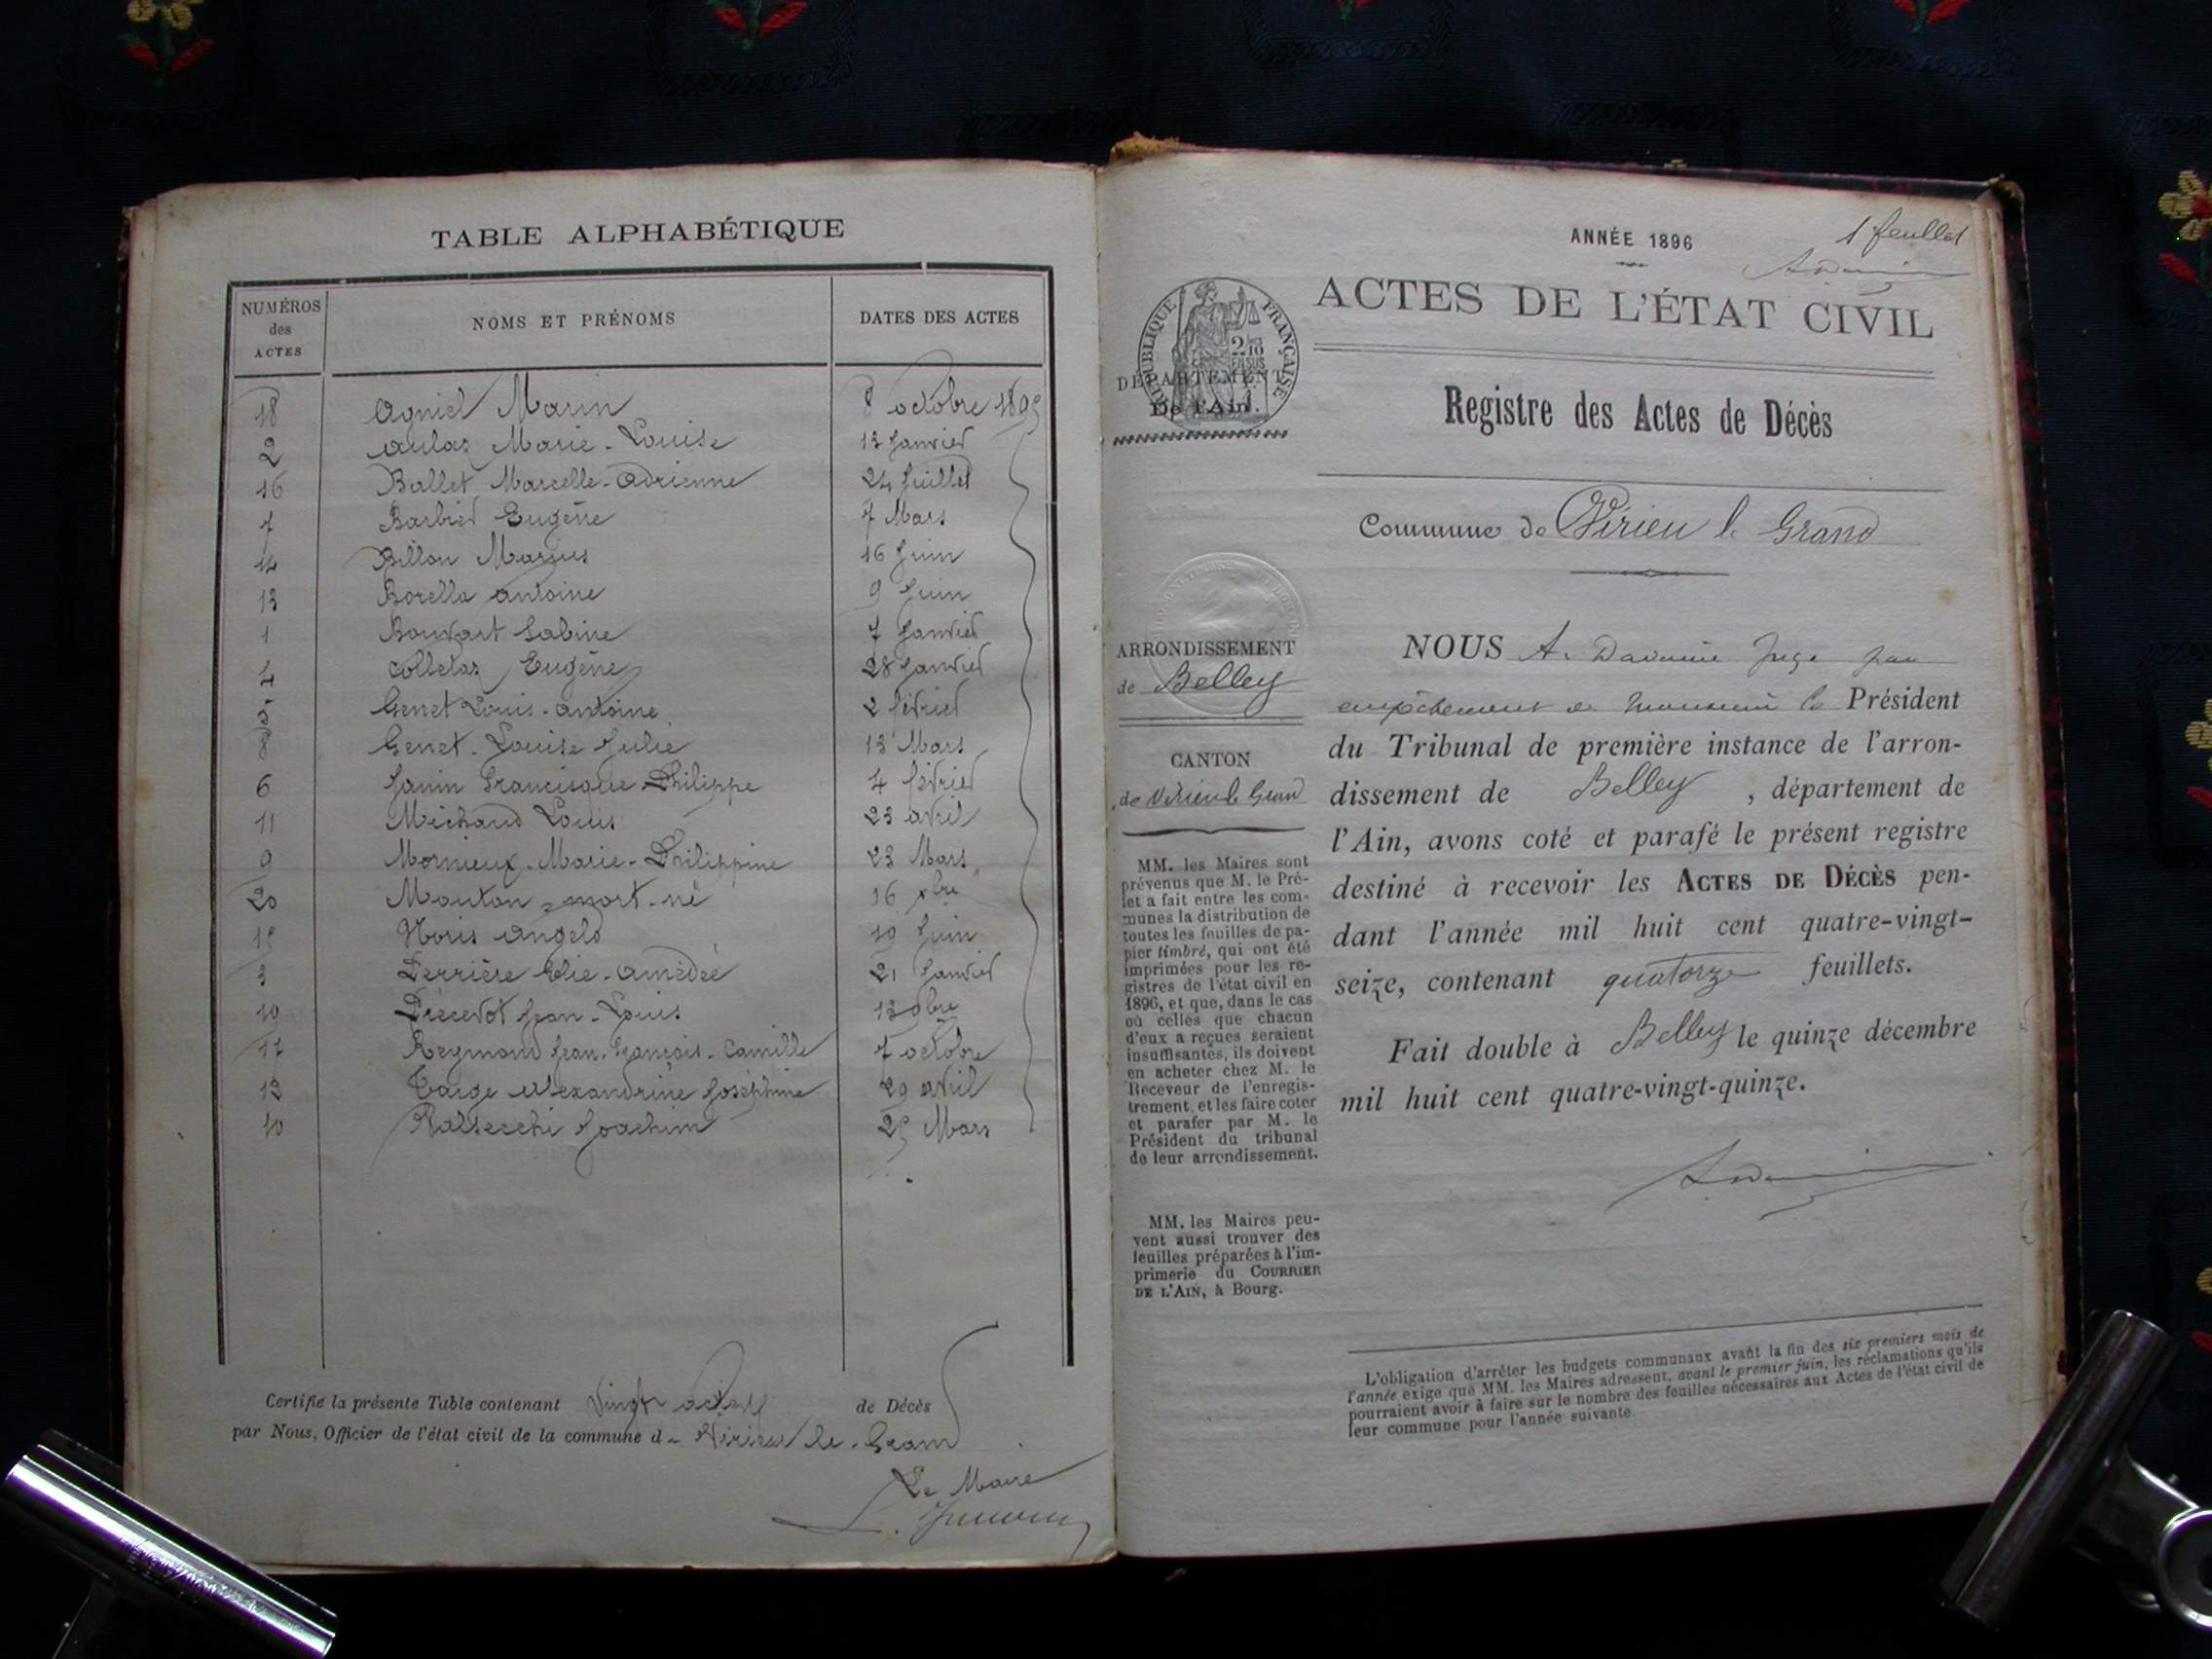 TABLE ALPHABÉTIQUE
NUMÉROS
des
ACTES
NOMS ET PRÉNOMS
DATES DES ACTES
18 Agniel Marin 8 octobre 1895
2 Aulas Marie-Louise 13 Janvier
16 Ballet Marcelle-Adrienne 24 Juillet
7 Barbier Eugène 7 Mars
14 Billon Marius 16 Juin
13 Borella Antoine 9 Juin
1 Bouvart Sabine 7 Janvier
4 Colletas Eugène 28 Janvier
5 Genet Louis-Antoine 2 février
8 Genet-Louise Julie 13 Mars
6 Janin Francisque-Philippe 4 février
11 Michaud Louis 23 avril
9 Mornieux-Marie-Philippine 23 Mars
20 Mouton-mort-né 16 xbre
15 Noris Angelo 19 Juin
3 Perrière Elie-Amédée 21 Janvier
19 Jean-Louis 13 9bre
17 Reymond Jean-François-Camille 7 octobre
12 Alexandrine Joséphine 29 avril
10 Valsecchi Joachim 25 Mars
Certifié la présente Table contenant vingt actes de Décès
par Nous, Officier de l'état civil de la commune de Virieu le-Grand
Le Maire
1 feuillet
ANNÉE 1896
ACTES DE L'ÉTAT CIVIL
RÉPUBLIQUE FRANÇAISE
DÉPARTEMENT
De l'Ain.
Registre des Actes de Décès
Commune de Virieu le Grand
ARRONDISSEMENT
de Belley
CANTON
de Virieu le Grand
MM. les Maires sont
prévenus que M. le Pré-
fet a fait entre les com-
munes la distribution de
toutes les feuilles de pa-
pier timbré, qui ont été
imprimées pour les re-
gistres de l'état civil en
1896, et que, dans le cas
où celles que chacun
d'eux a reçues seraient
insuffisantes, ils doivent
en acheter chez M. le
Receveur de l'enregis-
trement, et les faire coter
et parafer par M. le
Président du tribunal
de leur arrondissement.
MM. les Maires peu-
vent aussi trouver des
feuilles préparées à l'im-
primerie du COURRIER
DE L'AIN, à Bourg.
NOUS A. Juge par
empêchement de Monsieur le Président
du Tribunal de première instance de l'arron-
dissement de Belley, département de
l'Ain, avons coté et parafé le présent registre
destiné à recevoir les ACTES DE DÉCÈS pen-
dant l'année mil huit cent quatre-vingt-
seize, contenant quatorze feuillets.
Fait double à Belley le quinze décembre
mil huit cent quatre-vingt-quinze.
L'obligation d'arrêter les budgets communaux avant la fin des six premiers mois de
l'année exige que MM. les Maires adressent, avant le premier juin, les réclamations qu'ils
pourraient avoir à faire sur le nombre des feuilles nécessaires aux Actes de l'état civil de
leur commune pour l'année suivante.